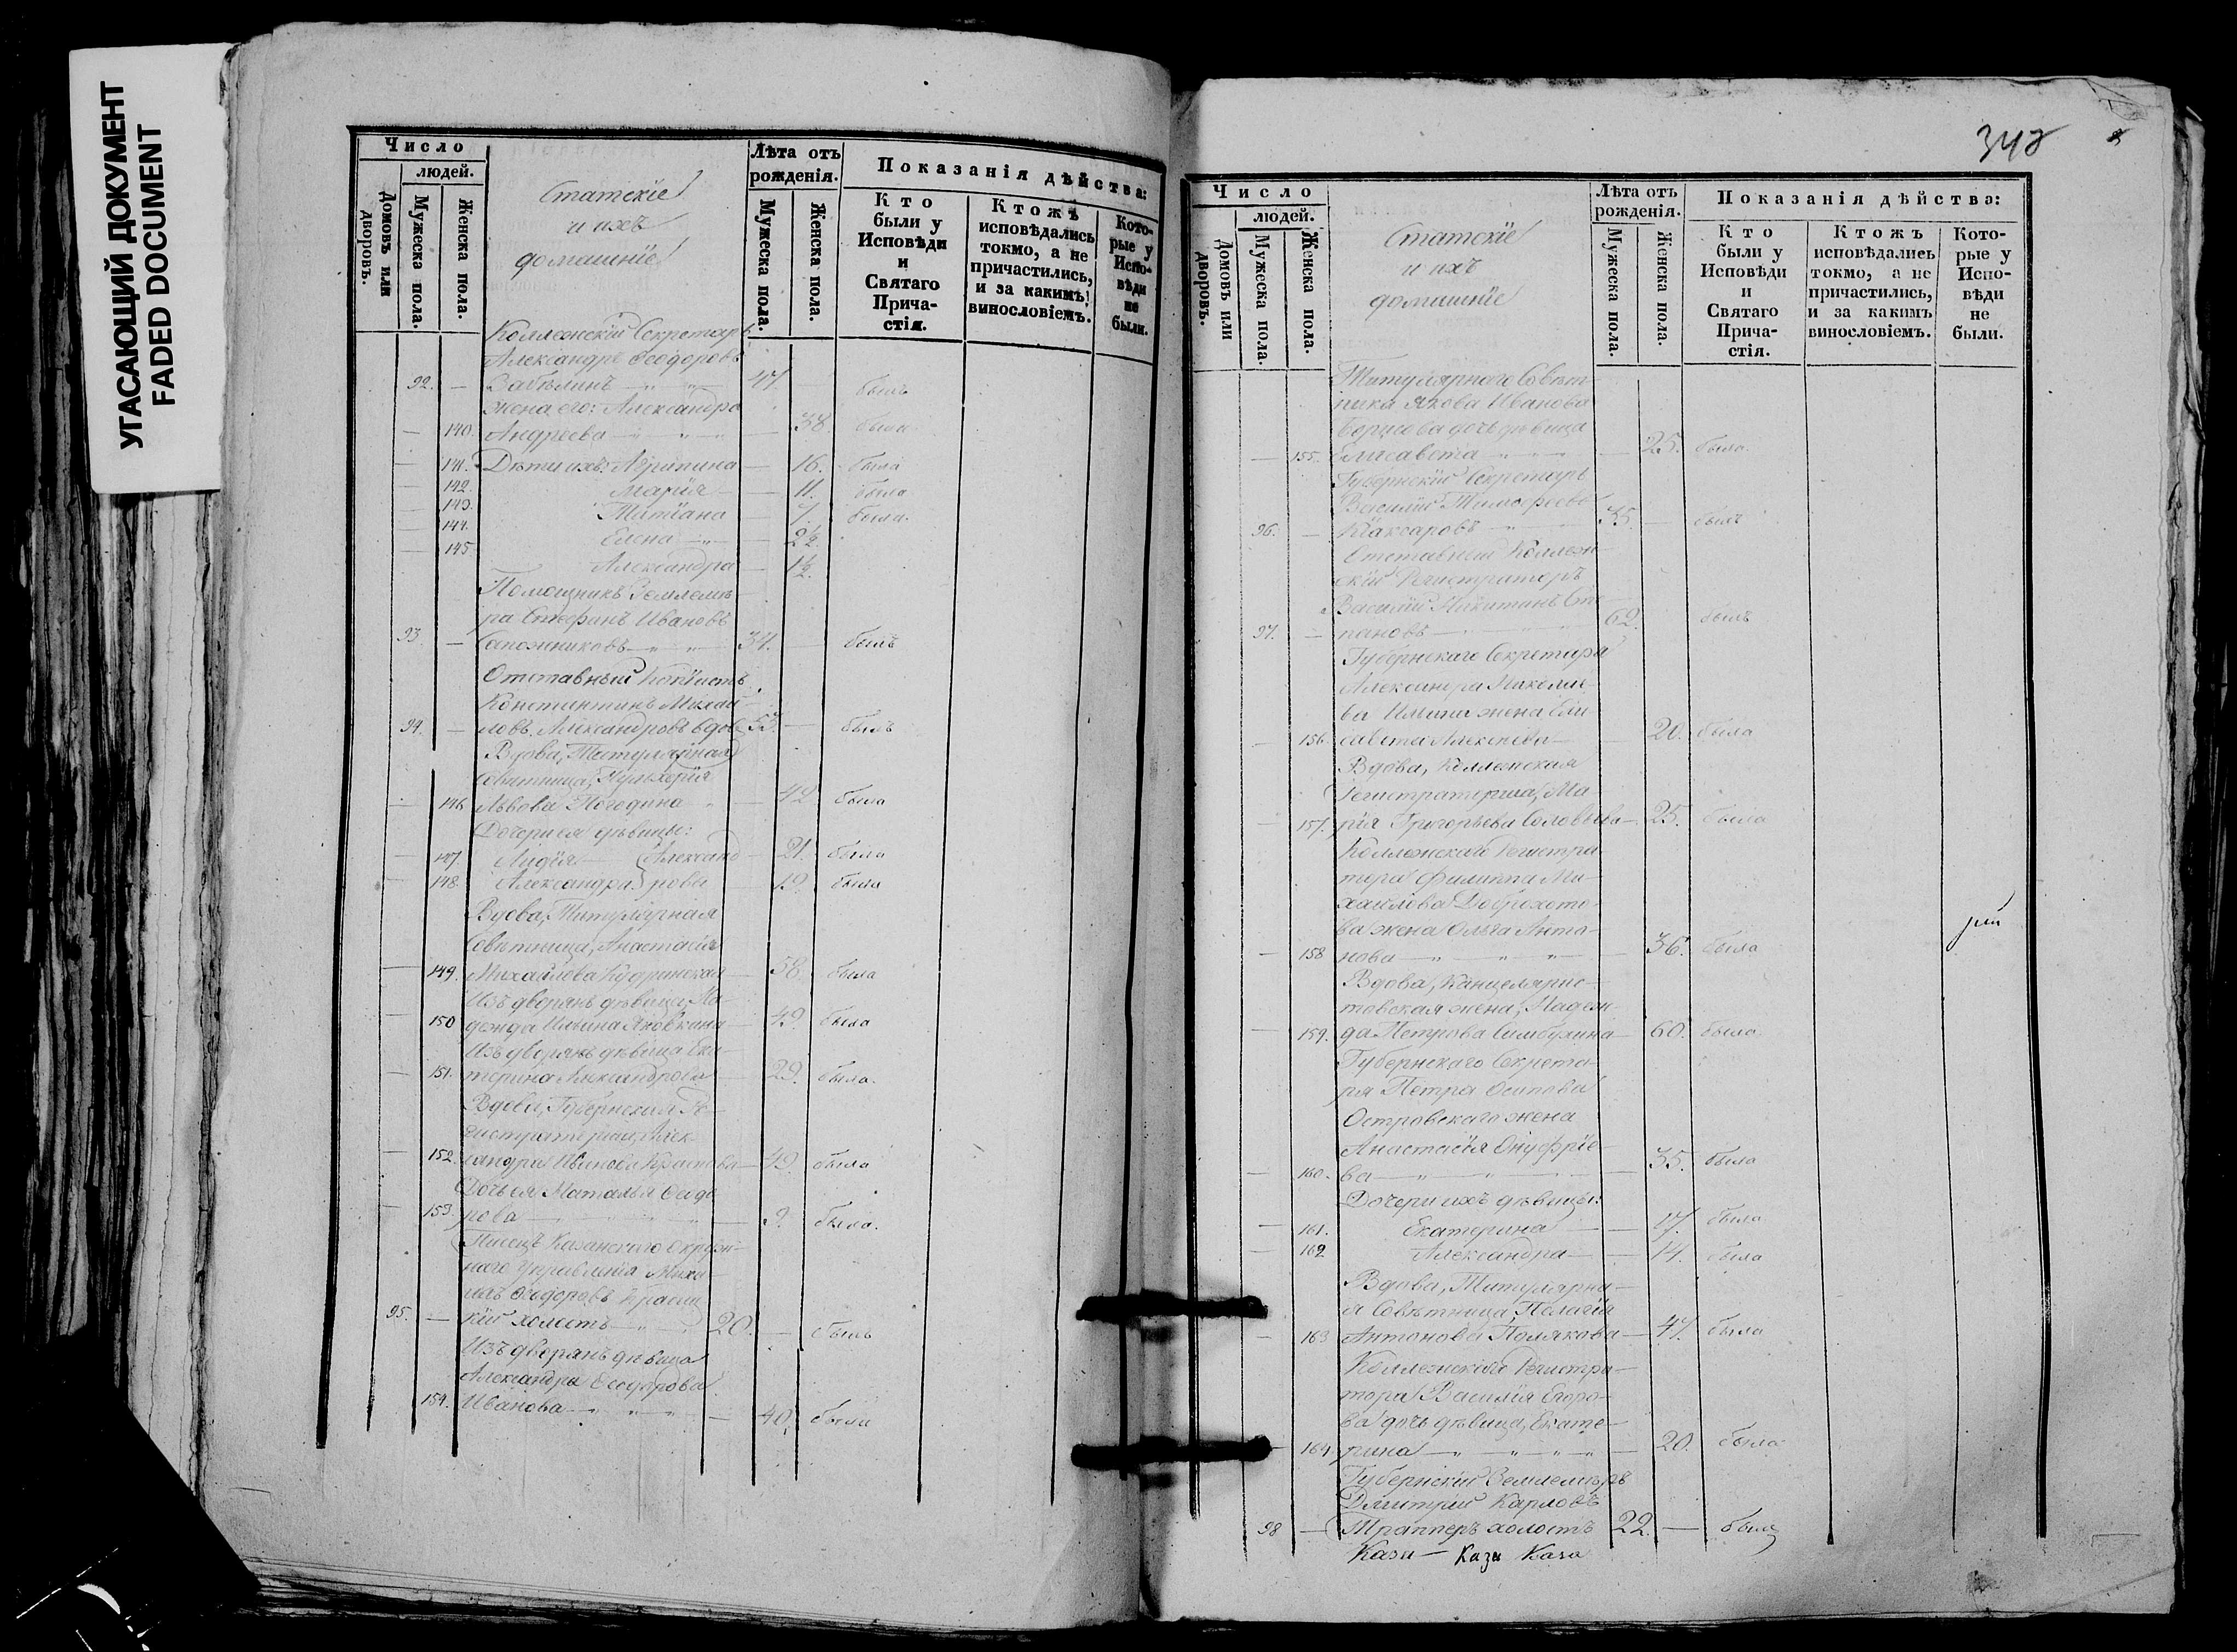 УГАСАЮЩИЙ ДОКУМЕНТ
FADED DOCUMENT
Число
людей.
Домовъ или дворовъ.
Мужеска пола.
Женска пола.
Статскіе
и ихъ
домашніе
Лѣта отъ рожденія.
Мужеска пола.
Женска пола.
Показанія дѣйства:
Кто были у Исповѣди и Святаго Прича-стія.
Ктожъ исповѣдались токмо, а не причастились, и за какимъ винословіемъ.
Кото-рые у Испо-вѣди не были.
Коллежскій Секретарь
Александръ Ѳеодоровъ
92. — Забѣлинъ — 47. былъ
Жена его: Александра
— 140. Андреева — 38. была
— 141. Дѣти ихъ: Агрипина — 16. была
— 142. Марія — 11. была
— 143. Татіана — 7. была.
— 144. Елена — 2½
— 145 Александра — 1½.
Помощникъ Землемѣ-
ра Стефанъ Ивановъ
93. — Сапожниковъ — 34. — былъ
Отставный Копіистъ
Константинъ Михай-
94. — ловъ Александровъ вдовъ 53. — былъ
Вдова, Титулярная
Совѣтница, Пульхерія
— 146 Львова Погодина — 42 была
Дочери ея дѣвицы:
— 147. Лидія Александ- — 21. была
— 148. Александра рова — 19. была
Вдова, Титулярная
Совѣтница, Анастасія
— 149. Михайлова Кудринская — 58. была
Изъ дворянъ дѣвица На-
— 150 дежда Ильина — 49. была
Изъ дворянъ дѣвица Ека-
— 151. терина Александрова — 29. была.
Вдова, Губернская Ре-
гистраторша, Алек-
— 152. сандра Иванова — 49. была
Дочь ея Наталья Ѳеодо-
— 153. рова — 9. была.
Писецъ Казанскаго Окруж-
наго Управленія Миха-
илъ Ѳеодоровъ
95. — кій холостъ — 20. — былъ
Изъ дворянъ дѣвица
Александра Ѳеодорова
154. Иванова — 40. была
348
Число
людей.
Домовъ или дворовъ.
Мужеска пола.
Женска пола.
Статскіе
и ихъ
домашніе
Лѣта отъ рожденія.
Мужеска пола.
Женска пола.
Показанія дѣйства:
Кто были у Исповѣди и Святаго Прича-стія.
Ктожъ исповѣдались токмо, а не причастились, и за какимъ винословіемъ.
Кото-рые у Испо-вѣди не были.
Титулярнаго Совѣт-
ника Якова Иванова
Борисова дочь дѣвица
— 155. Елисавета — 25. была.
Губернскій Секретарь
Василій Тимоѳеевъ
96. — 35. — былъ
Отставный Коллеж-
скій Регистраторъ
Василій Никитинъ Сте-
97. — пановъ — 62. былъ
Губернскаго Секретаря
Александра Николае-
ва Ильина жена Ели-
— 156. савета Алексѣева — 20. была
Вдова, Коллежская
Регистраторша, Ма-
— 157. рія Григорьева Соловьева — 25. была
Коллежскаго Регистра-
тора Филиппа Ми-
хайлова Доброхото-
ва жена Ольга Анто-
— 158 нова — 36. была
Вдова, Канцелярис-
товская жена, Надеж-
— 159. да Петрова Симбулина — 60. была.
Губернскаго Секрета-
ря Петра Осипова
Островскаго жена
Анастасія Онуфріе-
— 160. ва — 35. была
Дочери ихъ дѣвицы:
— 161. Екатерина — 17. была
— 162 Александра — 14. была
Вдова, Титулярна-
я Совѣтница, Пелагія
— 163 Антонова Полякова — 47. была
Коллежскаго Регистра-
тора Василія Егоро-
ва дочь дѣвица, Екате-
— 164. рина — 20. была
Губернскій Землемѣръ
Дмитрій Карловъ
98 — Трапперъ холостъ 22. — былъ
Кази— Кази Каза